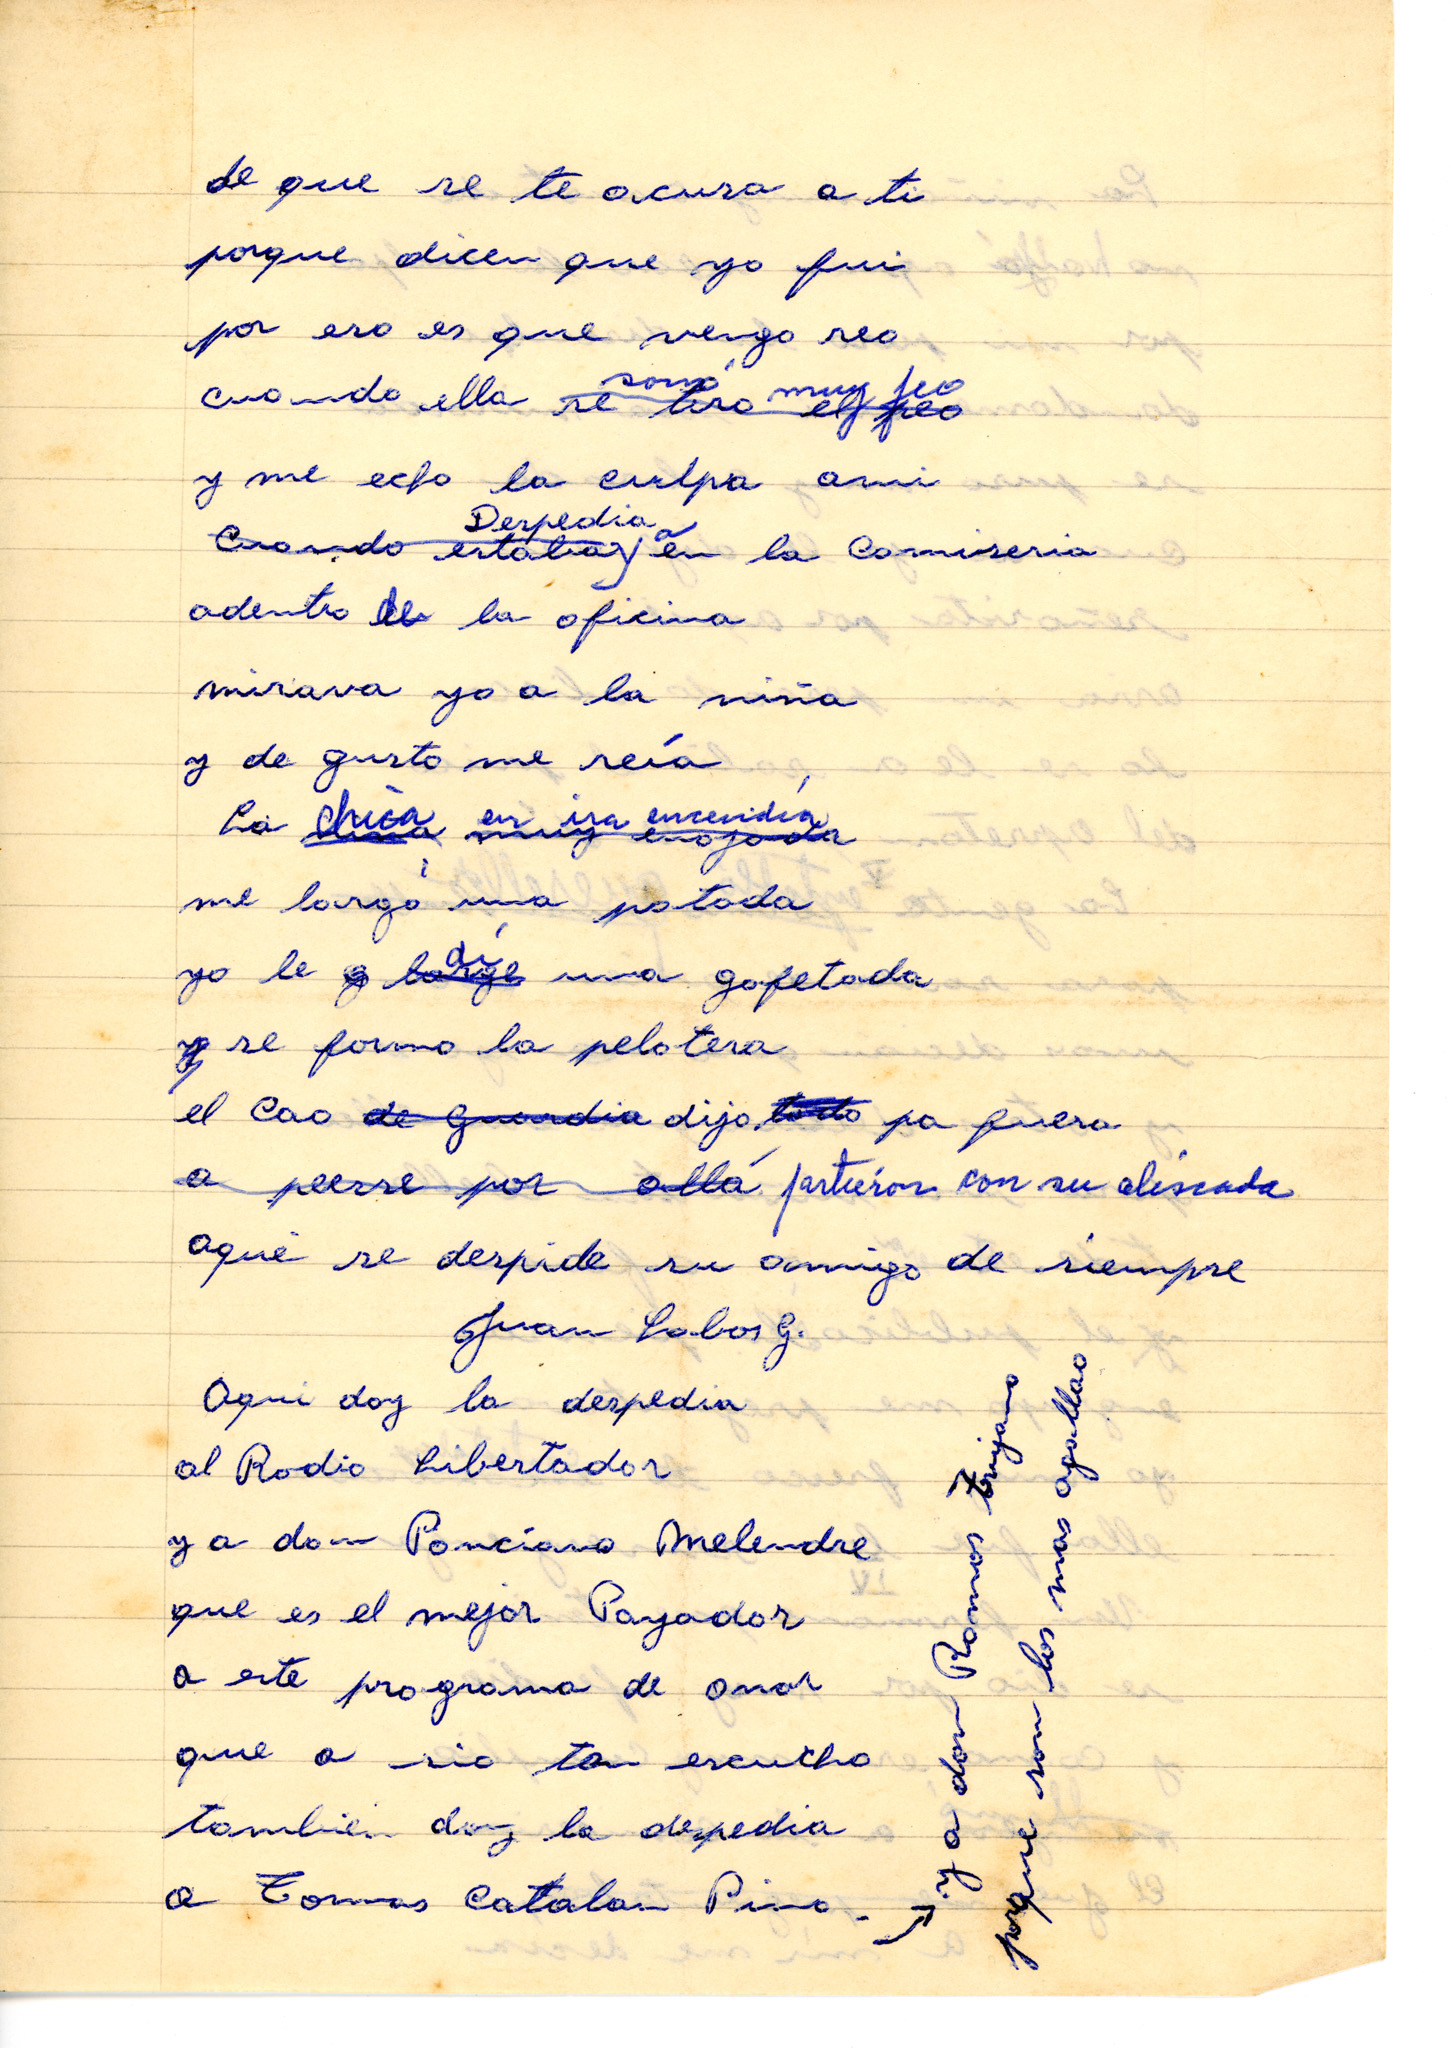 de que se te acusa a ti
porque dicen que yo fui
por eso es que vengo reo
sonó muy feo
cuando ella se tiro el peo
y me echo la culpa ami
Despedia
Cuando estaba en la Comiseria
adentro de la oficina
mirava yo a la niña
y de gusto me reía
chica en ira encendía
La muy enojada
me largó una patada
di
yo le large una gofetada
y se formo la pelotera
el Cao de Guardia dijo, todo pa fuera
a peerse por allá partierón con su aliscada
aqui se despide su amigo de siempre
Juan Lobos G.
Aqui doy la despedia
al Radio Libertador
y a don Ponciano Melendre
que es el mejor Payador
a este programa de onor
que a sio tan escucho
también doy la despedia
a Tomas Catalan Pino.
y a don Ramos Trujano
porque son los mas agallao